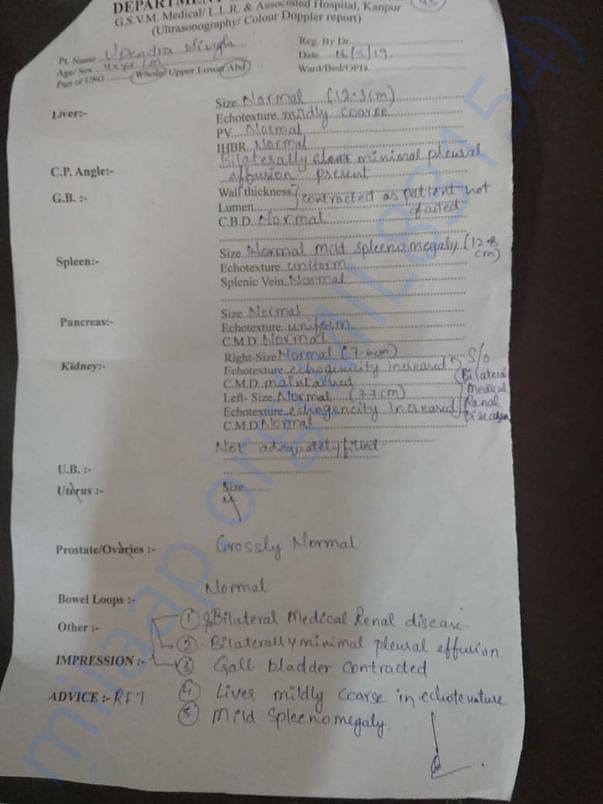 DEPARTMENT
G.S.V.M. Medical/ L.L.R. & Associated Hospital, Kanpur
(Ultrasonography/ Colour Doppler report)
Pt. Name Upendra Singh
Reg. By Dr.
Age/ Sex
Date 16/5/19
Part of USG Whole/ Upper Lower Abd
Ward/Bed/OPD
Liver:- Size Normal (12.3cm)
Echotexture mildly coarse
PV Normal
IHBR Normal
C.P. Angle:- Bilaterally minimal pleural
effusion present
G.B. :- Wall thickness } contracted as patient not
Lumen fasted
C.B.D. Normal
Spleen:- Size Normal Mild Spleenomegaly (12.8
cm)
Echotexture uniform
Splenic Vein Normal
Pancreas:- Size Normal
Echotexture uniform
C.M.D. Normal
Kidney:- Right-Size Normal (7.6cm)
Echotexture echogenicity increased } S/o
C.M.D. maintained Bilateral
Left- Size Normal (7.7cm) Medical
Echotexture echogencity Increased Renal
C.M.D. Normal Disease
Not adequately filled
U.B. :-
Uterus :- Size
Prostate/Ovaries :- Grossly Normal
Bowel Loops :- Normal
Other :- ① Bilateral Medical Renal disease
② Bilaterally minimal pleural effusion
IMPRESSION :- ③ Gall bladder contracted
ADVICE :- RFT ④ Liver mildly coarse in echotexture
⑤ Mild Spleenomegaly.
milaap.org